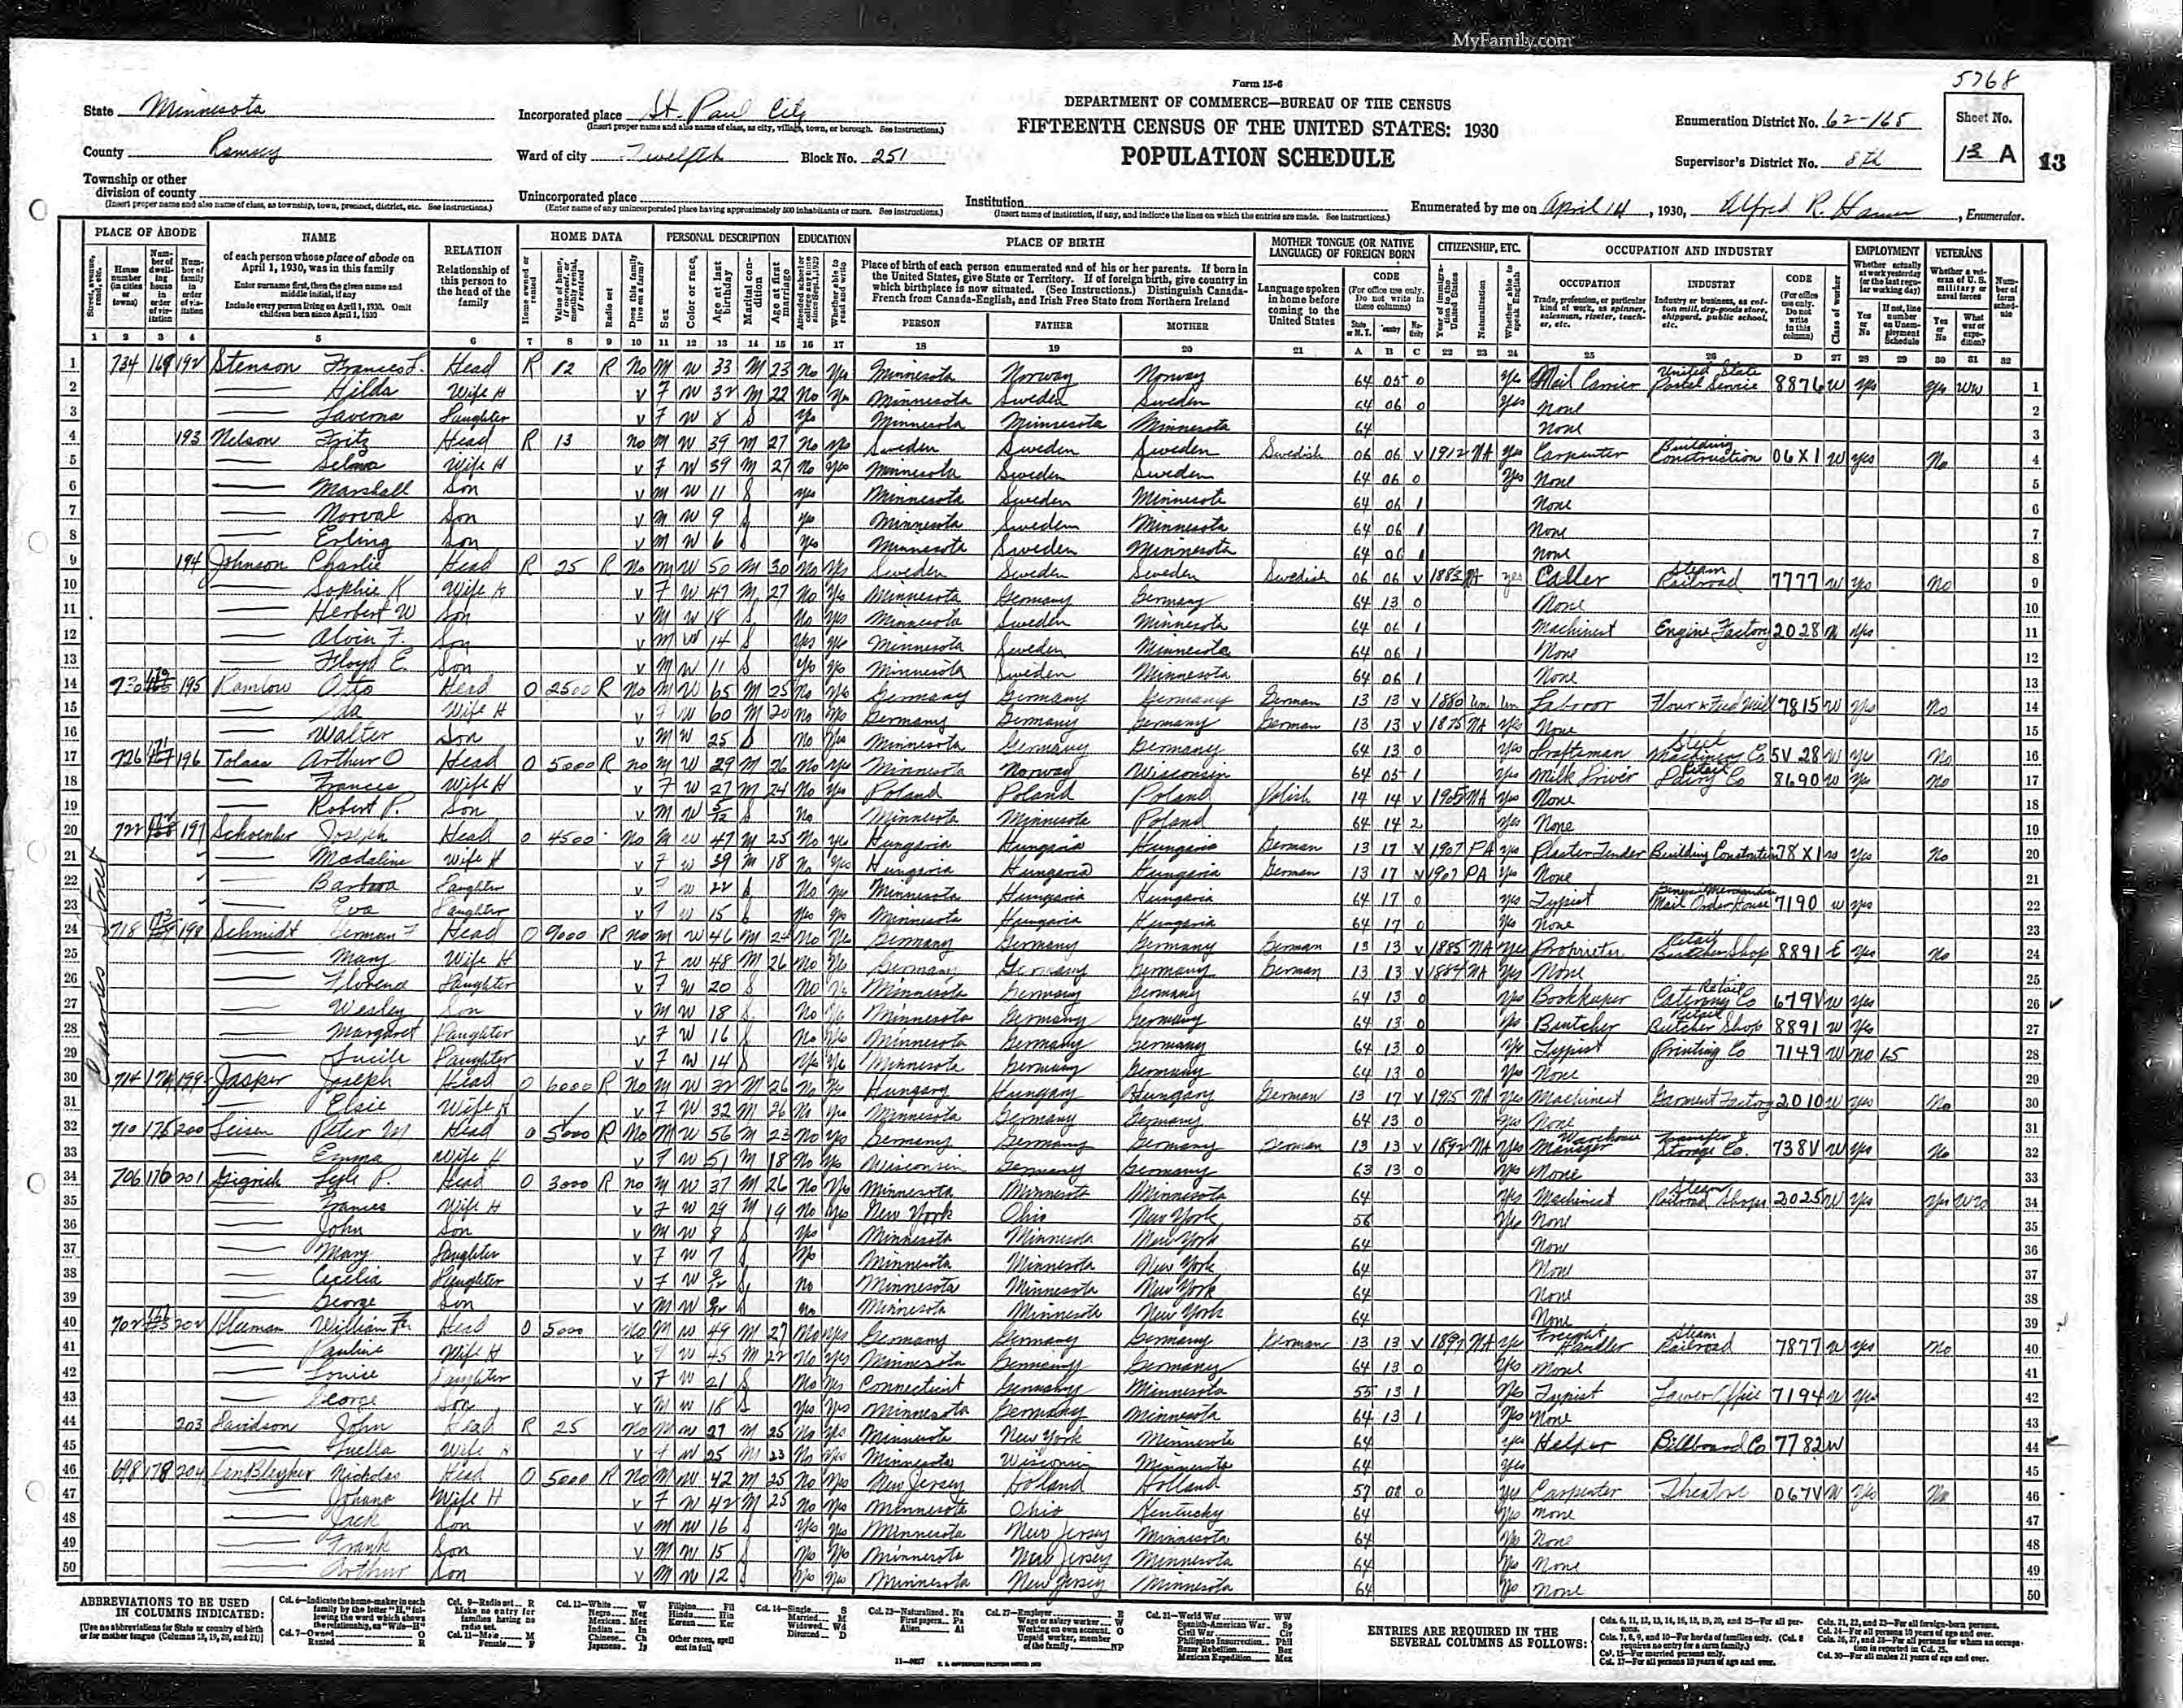 MyFamily.com
5768
Form 15-6
DEPARTMENT OF COMMERCE—BUREAU OF THE CENSUS
FIFTEENTH CENSUS OF THE UNITED STATES: 1930
POPULATION SCHEDULE
State Minnesota
County Ramsey
Township or other division of county
(Insert proper name and also name of class, as township, town, precinct, district, etc. See instructions.)
Incorporated place St. Paul City
(Insert proper name and also name of class, as city, village, town, or borough. See instructions.)
Ward of city Twelfth Block No. 251
Unincorporated place
(Enter name of any unincorporated place having approximately 500 inhabitants or more. See instructions.)
Institution
(Insert name of institution, if any, and indicate the lines on which the entries are made. See instructions.)
Enumeration District No. 62-165
Supervisor's District No. 8th
Sheet No. 13 A 13
Enumerated by me on April 14, 1930, Alfred R. , Enumerator.
PLACE OF ABODE NAME RELATION HOME DATA PERSONAL DESCRIPTION EDUCATION PLACE OF BIRTH MOTHER TONGUE (OR NATIVE LANGUAGE) OF FOREIGN BORN CITIZENSHIP, ETC. OCCUPATION AND INDUSTRY EMPLOYMENT VETERANS
1 734 169 192 Stenson Frances L. Head R 12 R No M W 33 M 23 No Yes Minnesota Norway Norway 64 05 0 Yes Mail Carrier United State Postal Service 8876 W Yes Yes WW 1
2 Hilda Wife H V F W 32 M 22 No Yes Minnesota Sweden Sweden 64 06 0 Yes None 2
3 Laverna Daughter V F W 8 S Yes Minnesota Minnesota Minnesota 64 None 3
4 193 Nelson Fritz Head R 13 No M W 39 M 27 No Yes Sweden Sweden Sweden Swedish 06 06 V 1912 NA Yes Carpenter Building Construction 06X1 W Yes No 4
5 Selma Wife H V F W 39 M 27 No Yes Minnesota Sweden Sweden 64 06 0 Yes None 5
6 Marshall Son V M W 11 S Yes Minnesota Sweden Minnesota 64 06 1 None 6
7 Norval Son V M W 9 S Yes Minnesota Sweden Minnesota 64 06 1 None 7
8 Erling Son V M W 6 S Yes Minnesota Sweden Minnesota 64 06 1 None 8
9 194 Johnson Charlie Head R 25 R No M W 50 M 30 No Yes Sweden Sweden Sweden Swedish 06 06 V 1883 NA Yes Caller Steam Railroad 7777 W Yes No 9
10 Sophie K Wife H V F W 47 M 27 No Yes Minnesota Germany Germany 64 13 0 None 10
11 Herbert W Son V M W 18 S No Yes Minnesota Sweden Minnesota 64 06 1 Machinest Engine Factory 2028 W Yes 11
12 Alvin F. Son V M W 14 S Yes Yes Minnesota Sweden Minnesota 64 06 1 None 12
13 Floyd E. Son V M W 11 S Yes Yes Minnesota Sweden Minnesota 64 06 1 None 13
14 730 195 Ramlow Otto Head O 2500 R No M W 65 M 25 No Yes Germany Germany Germany German 13 13 V 1880 Un Un Laboror Flour & Feed Mill 7815 W Yes No 14
15 Ida Wife H V F W 60 M 20 No Yes Germany Germany Germany German 13 13 V 1875 NA Yes None 15
16 Walter Son V M W 25 S No Yes Minnesota Germany Germany 64 13 0 Yes Draftsman Steel Machinery Co 5V28 W Yes No 16
17 726 196 Tolaas Arthur O Head O 5000 R No M W 29 M 26 No Yes Minnesota Norway Wisconsin 64 05 1 Yes Milk Driver Retail Dairy Co 8690 W Yes No 17
18 Frances Wife H V F W 27 M 24 No Yes Poland Poland Poland Polish 14 14 V 1905 NA Yes None 18
19 Robert P. Son V M W 5/12 S No Minnesota Minnesota Poland 64 14 2 Yes None 19
20 722 197 Joseph Head O 4500 No M W 47 M 25 No Yes Hungaria Hungaria Hungaria German 13 17 V 1907 PA Yes Plaster Tender Building Construction 78X1 W Yes No 20
21 Madaline Wife H V F W 39 M 18 No Yes Hungaria Hungaria Hungaria German 13 17 V 1907 PA Yes None 21
22 Barbara Daughter V F W 22 S No Yes Minnesota Hungaria Hungaria 64 17 0 Yes Typist Mail Order House 7190 W Yes 22
23 Eva Daughter V F W 15 S Yes Yes Minnesota Hungaria Hungaria 64 17 0 Yes None 23
24 718 198 Schmidt Herman F Head O 9000 R No M W 46 M 24 No Yes Germany Germany Germany German 13 13 V 1885 NA Yes Proprieter Retail Butcher Shop 8891 E Yes No 24
25 Mary Wife H V F W 48 M 26 No Yes Germany Germany Germany German 13 13 V 1884 NA Yes None 25
26 Florence Daughter V F W 20 S No Yes Minnesota Germany Germany 64 13 0 Yes Bookkeeper Retail Catering Co 679V W Yes 26
27 Wesley Son V M W 18 S No Yes Minnesota Germany Germany 64 13 0 Yes Butcher Retail Butcher Shop 8891 W Yes 27
28 Margaret Daughter V F W 16 S No Yes Minnesota Germany Germany 64 13 0 Yes Typist Printing Co 7149 W No 15 28
29 Lucile Daughter V F W 14 S Yes Yes Minnesota Germany Germany 64 13 0 Yes None 29
30 714 174 199 Jasper Joseph Head O 6000 R No M W 32 M 26 No Yes Hungary Hungary Hungary German 13 17 V 1915 NA Yes Machinest Garment Factory 2010 W Yes No 30
31 Elsie Wife H V F W 32 M 26 No Yes Minnesota Germany Germany 64 13 0 Yes None 31
32 710 175 200 Leisen Peter M Head O 5000 R No M W 56 M 23 No Yes Germany Germany Germany German 13 13 V 1892 NA Yes Warehouse Manager Transfer & Storage Co. 738V W Yes No 32
33 Emma Wife H V F W 51 M 18 No Yes Wisconsin Germany Germany 63 13 0 Yes None 33
34 706 176 201 Gigrich Lyle P. Head O 3000 R No M W 37 M 26 No Yes Minnesota Minnesota Minnesota 64 Yes Machinest Steam Railroad Shops 2025 W Yes Yes WW 34
35 Frances Wife H V F W 29 M 19 No Yes New York Ohio New York 56 Yes None 35
36 John Son V M W 8 S Yes Minnesota Minnesota New York 64 None 36
37 Mary Daughter V F W 7 S Yes Minnesota Minnesota New York 64 None 37
38 Cecelia Daughter V F W S No Minnesota Minnesota New York 64 None 38
39 George Son V M W S No Minnesota Minnesota New York 64 None 39
40 702 202 Kleeman William Head O 5000 No M W 49 M 27 No Yes Germany Germany Germany German 13 13 V 1897 NA Yes Freight Handler Steam Railroad 7877 W Yes No 40
41 Pauline Wife H V F W 45 M 22 No Yes Minnesota Germany Germany 64 13 0 Yes None 41
42 Louise Daughter V F W 21 S No Yes Connecticut Germany Minnesota 55 13 1 Yes Typist Office 7194 W Yes 42
43 George Son V M W 18 S Yes Yes Minnesota Germany Minnesota 64 13 1 Yes None 43
44 203 Davidson John Head R 25 No M W 27 M 25 No Yes Minnesota New York Minnesota 64 Yes Helper Billboard Co 7782 W 44
45 Luella Wife H V F W 25 M 23 No Yes Minnesota Wisconsin Minnesota 64 Yes 45
46 698 178 204 DenBleyker Nicholas Head O 5000 R No M W 42 M 25 No Yes New Jersey Holland Holland 57 08 0 Yes Carpenter Theatre 067V W Yes No 46
47 Johana Wife H V F W 42 M 25 No Yes Minnesota Ohio Kentucky 64 Yes None 47
48 Jack Son V M W 16 S Yes Yes Minnesota New Jersey Minnesota 64 Yes None 48
49 Frank Son V M W 15 S Yes Yes Minnesota New Jersey Minnesota 64 Yes None 49
50 Arthur Son V M W 12 S Yes Yes Minnesota New Jersey Minnesota 64 Yes None 50
Charles Street
ABBREVIATIONS TO BE USED IN COLUMNS INDICATED:
ENTRIES ARE REQUIRED IN THE SEVERAL COLUMNS AS FOLLOWS: